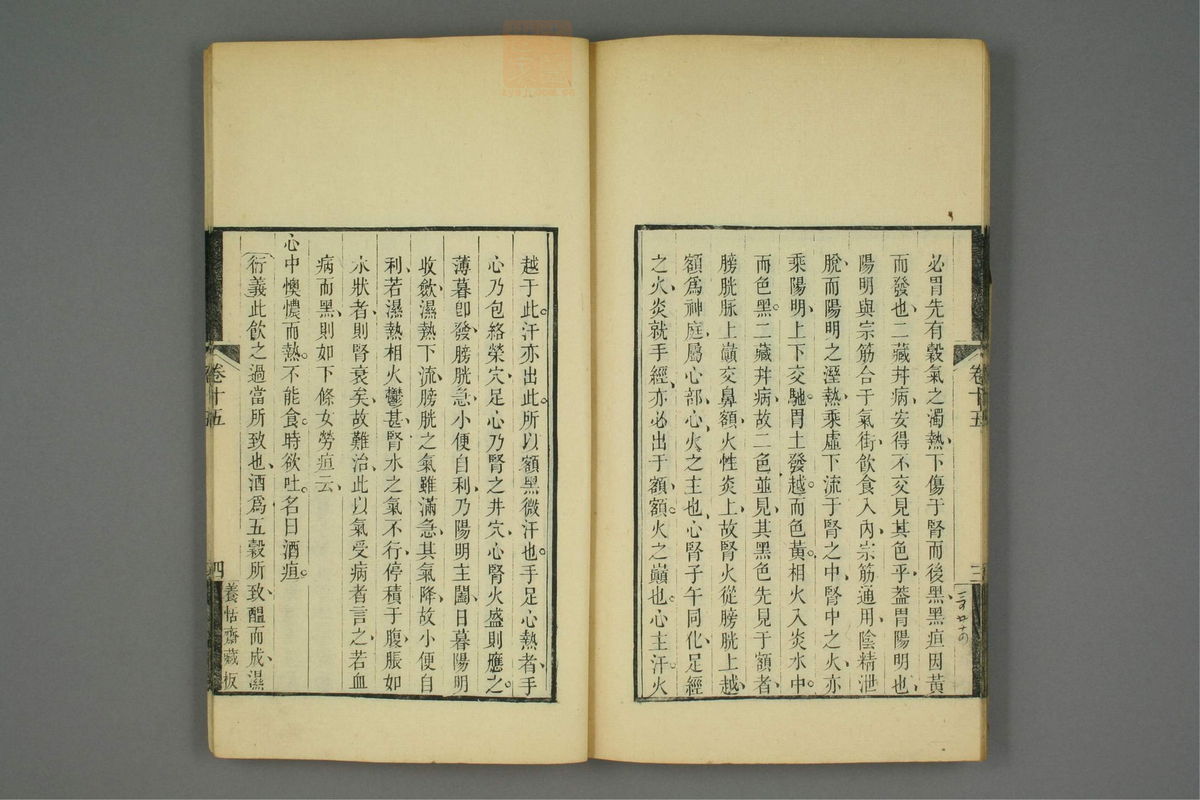 必胃先有穀氣之濁熱下傷于腎而後黑黑疸因黃
而發也二藏并病安得不交見其色乎蓋胃陽明也
陽明與宗筋合于氣街飲食入內宗筋通用陰精泄
脫而陽明之溼熱乘虛下流于腎之中腎中之火亦
乘陽明上下交馳胃土發越而色黃相火入炎水中
而色黑二藏并病故二色並見其黑色先見于額者
膀胱脉上巔交鼻額火性炎上故腎火從膀胱上越
額爲神庭屬心部心火之主也心腎子午同化足經
之火炎就手經亦必出于額額火之巔也心主汗火
卷十五
三
越于此汗亦出此所以額黑微汗也手足心熱者手
心乃包絡榮穴足心乃腎之井穴心腎火盛則應之
薄暮卽發膀胱急小便自利乃陽明主闔日暮陽明
收斂濕熱下流膀胱之氣雖滿急其氣降故小便自
利若濕熱相火鬱甚腎水之氣不行停積于腹脹如
水狀者則腎衰矣故難治此以氣受病者言之若血
病而黑則如下條女勞疸云
心中懊憹而熱不能食時欲吐名曰酒疸
衍義此飲之過當所致也酒爲五穀所致醞而成濕
卷十五
四
養恬齋藏板